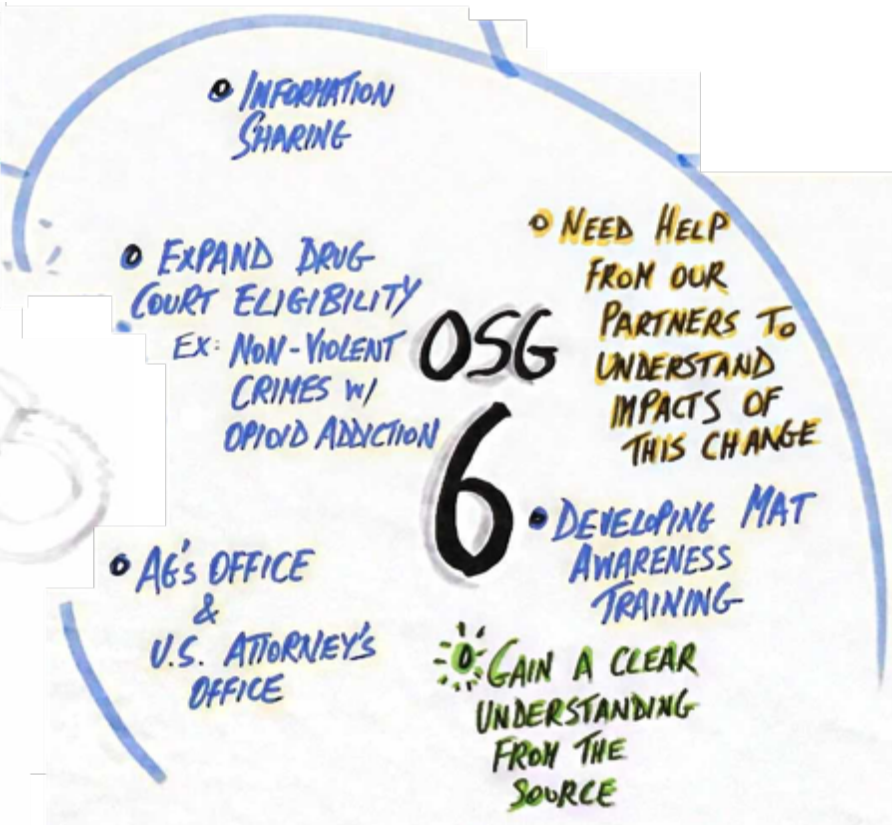 INFORMATION
SHARING
EXPAND DRUG
COURT ELIGIBILITY
EX: NON-VIOLENT
CRIMES W/
OPIOID ADDICTION
AG'S OFFICE
&
U.S. ATTORNEY'S
OFFICE
OSG
6
NEED HELP
FROM OUR
PARTNERS TO
UNDERSTAND
IMPACTS OF
THIS CHANGE
DEVELOPING MAT
AWARENESS
TRAINING
GAIN A CLEAR
UNDERSTANDING
FROM THE
SOURCE